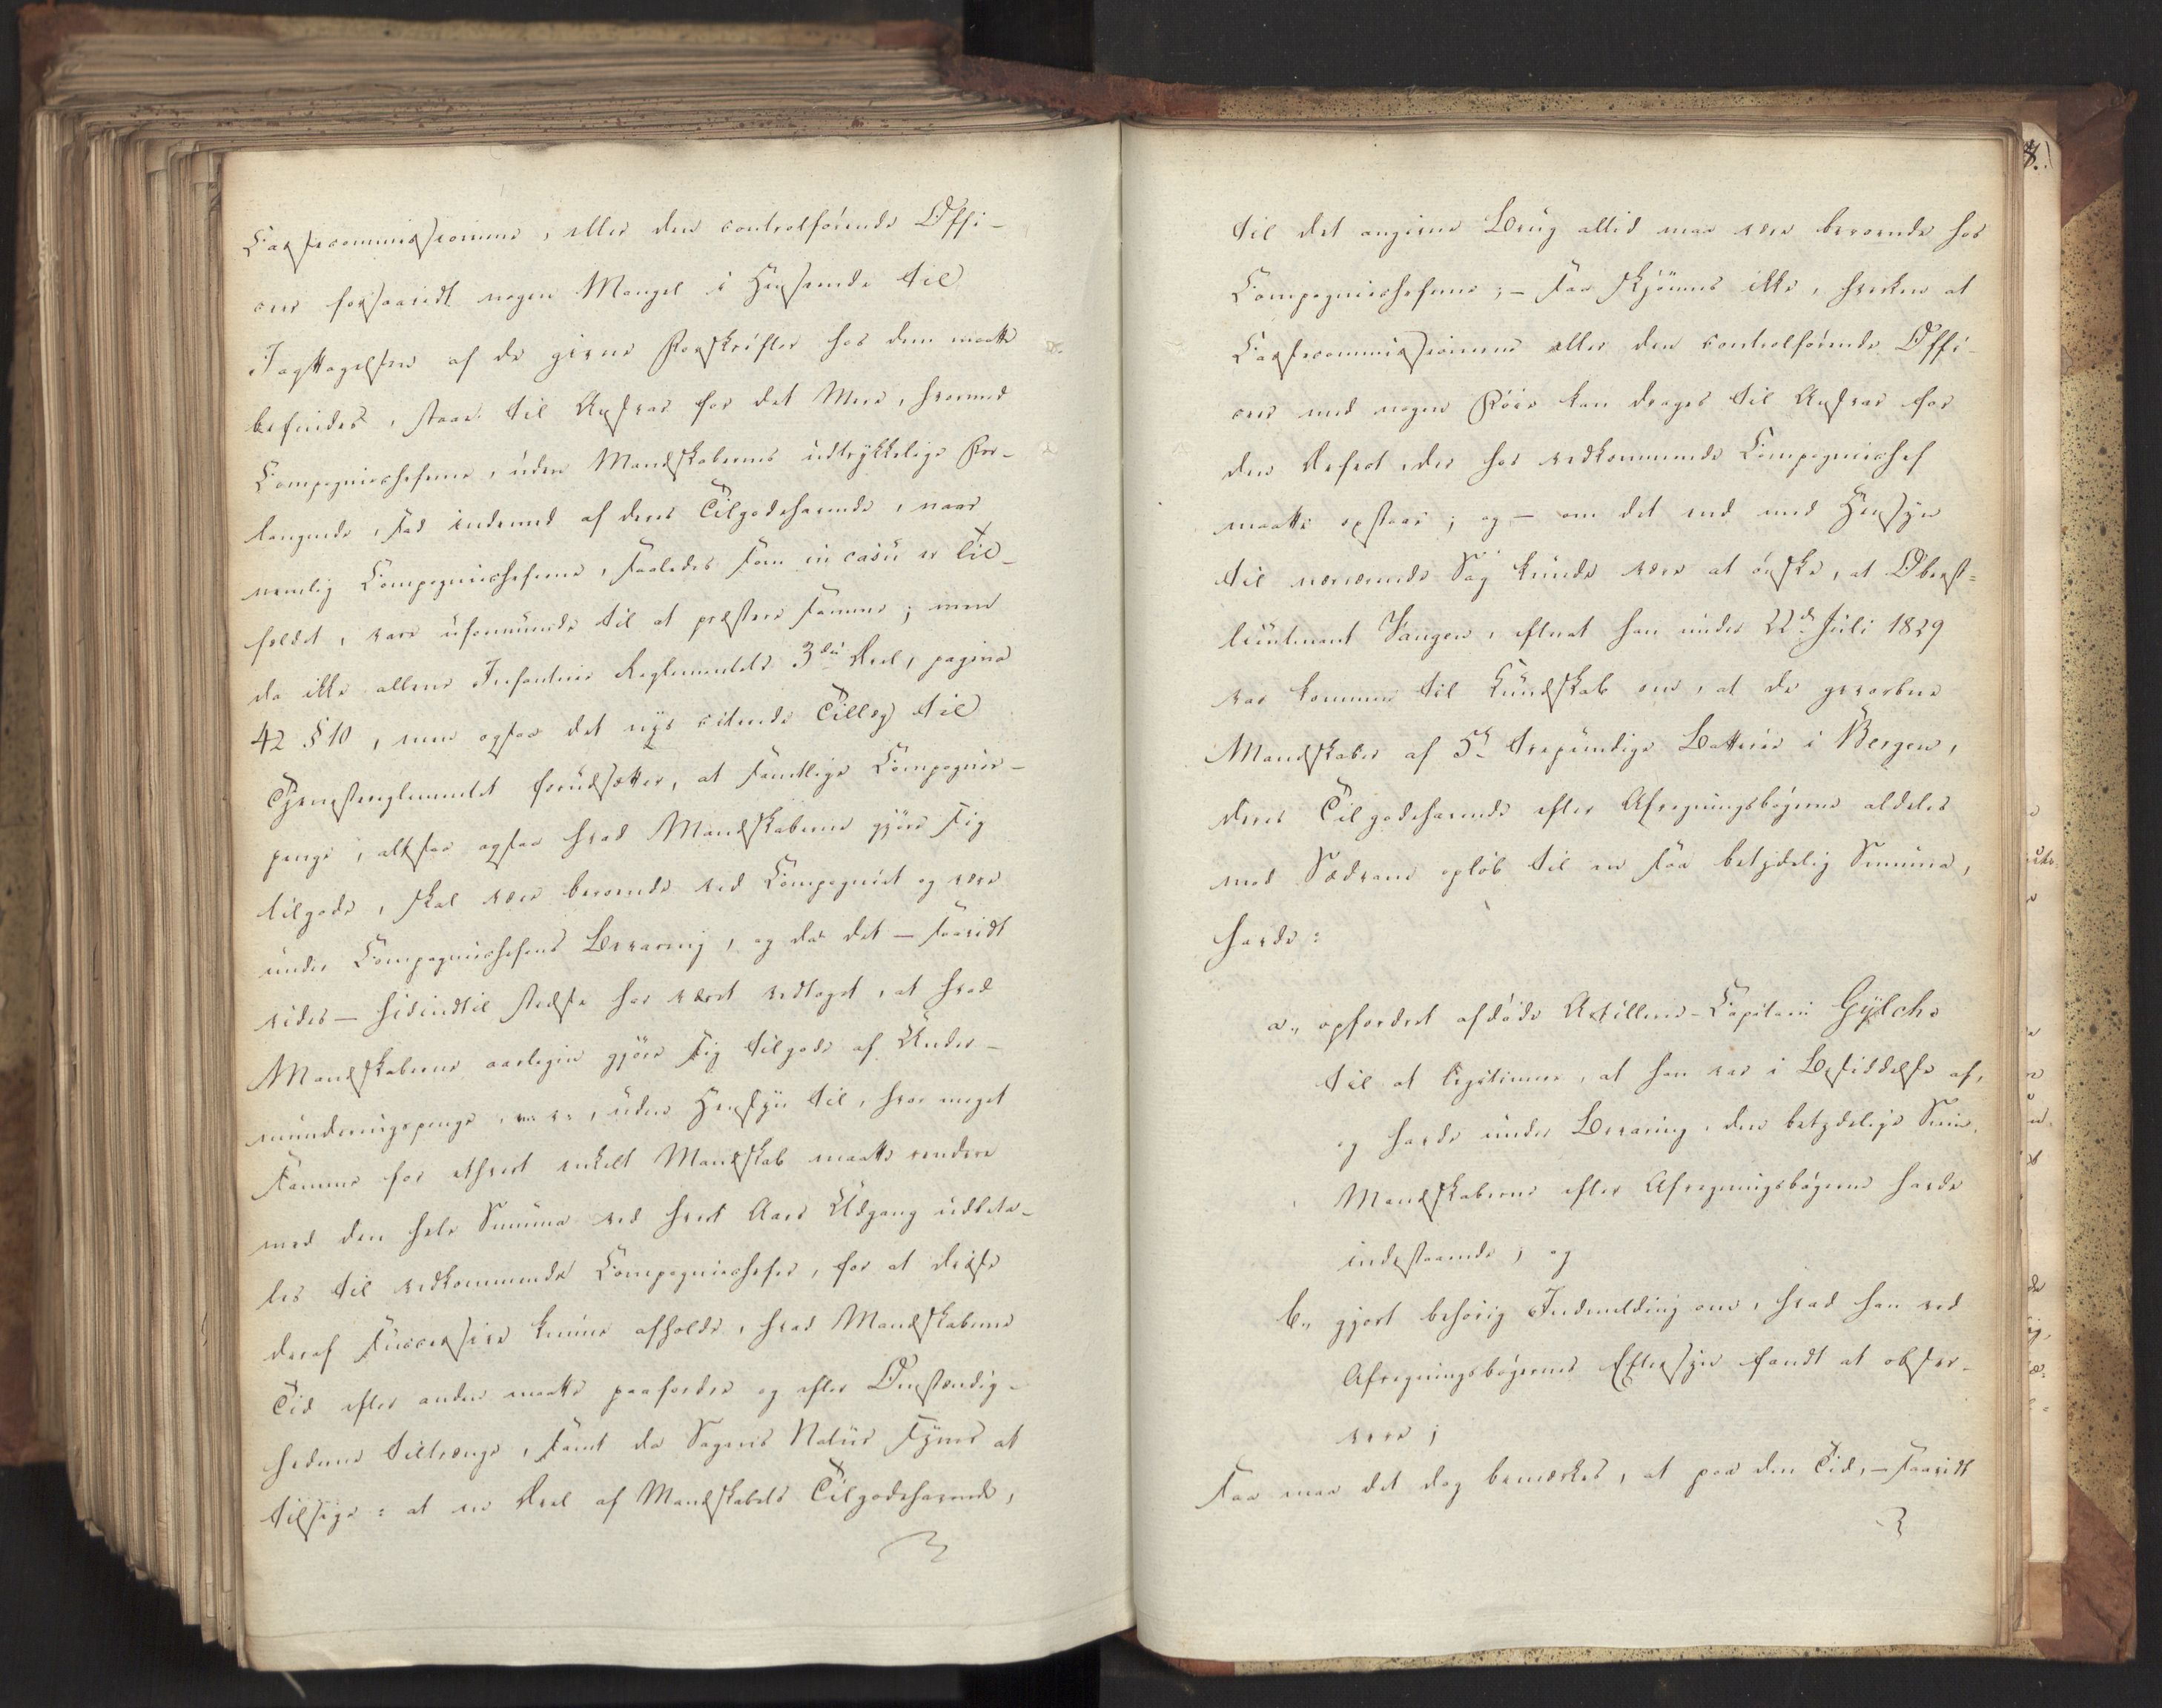 Cassecommissionerne, eller den controlførende Offi-
ceer forsaavidt nogen Mangel i Henseende til
Iagttagelsen af de givne Forskrifter hos dem maatte
befindes, staae til Ansvar for det Mere, hvormed
Compagniecheferne, uden Mandskabernes udtrykkelige For-
langende, sad indemed af deres Tilgodehavende, naar
nemlig Compagniecheferne, saaledes som in casu er Til-
fældet, vare uformuende til at præstere samme; men
da ikke allene Infanterie Reglementets 3die Deel, pagina
42 § 10, men ogsaa det nys citerede Tillæg til
Tjenestereglementet forudsætter, at samtlige Compagnie-
penge, altsaa ogsaa hvad Mandskaberne gjøre sig
tilgode, skal være beroende ved Compagniet og være
under Compagniechefens Bevaring, og da det – saavidt
vides – hidindtil stedse har været vedtaget, at hvad
Mandskaberne aarligen gjøre sig tilgode af Under-
munderingspenge, m. v., uden Hensyn til, hvor meget
samme for ethvert enkelt Mandskab maatte
med den hele Summa ved hvert Aars Udgang udbeta-
les til vedkommende Compagniechefer, for at disse
deraf successive kunne afholde, hvad Mandskaberne
Tid efter anden maatte paafordre og efter Omstændig-
hederne tiltrænge, samt da Sagens Natur synes at
tilsige: at en Deel af Mandskabets Tilgodehavende,
til det angivne Brug altid maa være beroende hos
Compagniecheferne; – saa skjønnes ikke, hverken at
Cassecommissionerne eller den controlførende Offi-
ceer med nogen Føie kan drages til Ansvar for
den Defect, der hos vedkommende Compagniechef
maatte opstaae; og – om det end med Hensyn
til nærværende Sag kunde være at ønske, at Oberst-
lieutenant Vangen, efterat han under 22de Juli 1829
var kommen til Kundskab om, at de gevorbne
Mandskaber af 5te trepundige Batterie i Bergen,
deres Tilgodehavende efter Afregningsbøgerne aldeles
mod Sædvane opløb til en saa betydelig Summa,
havde:
a., opfordret afdøde Artillerie-Capitain Gylche
til at legitimere, at han var i Besiddelse af,
og havde under Bevaring, den betydelige Sum,
Mandskaberne efter Afregningsbøgerne havde
indestaaende; og
b., gjort behørig Indmelding om, hvad han ved
Afregningsbøgernes Eftersyn fandt at obser-
vere;
saa maa det dog bemærkes, at paa den Tid, – saavidt